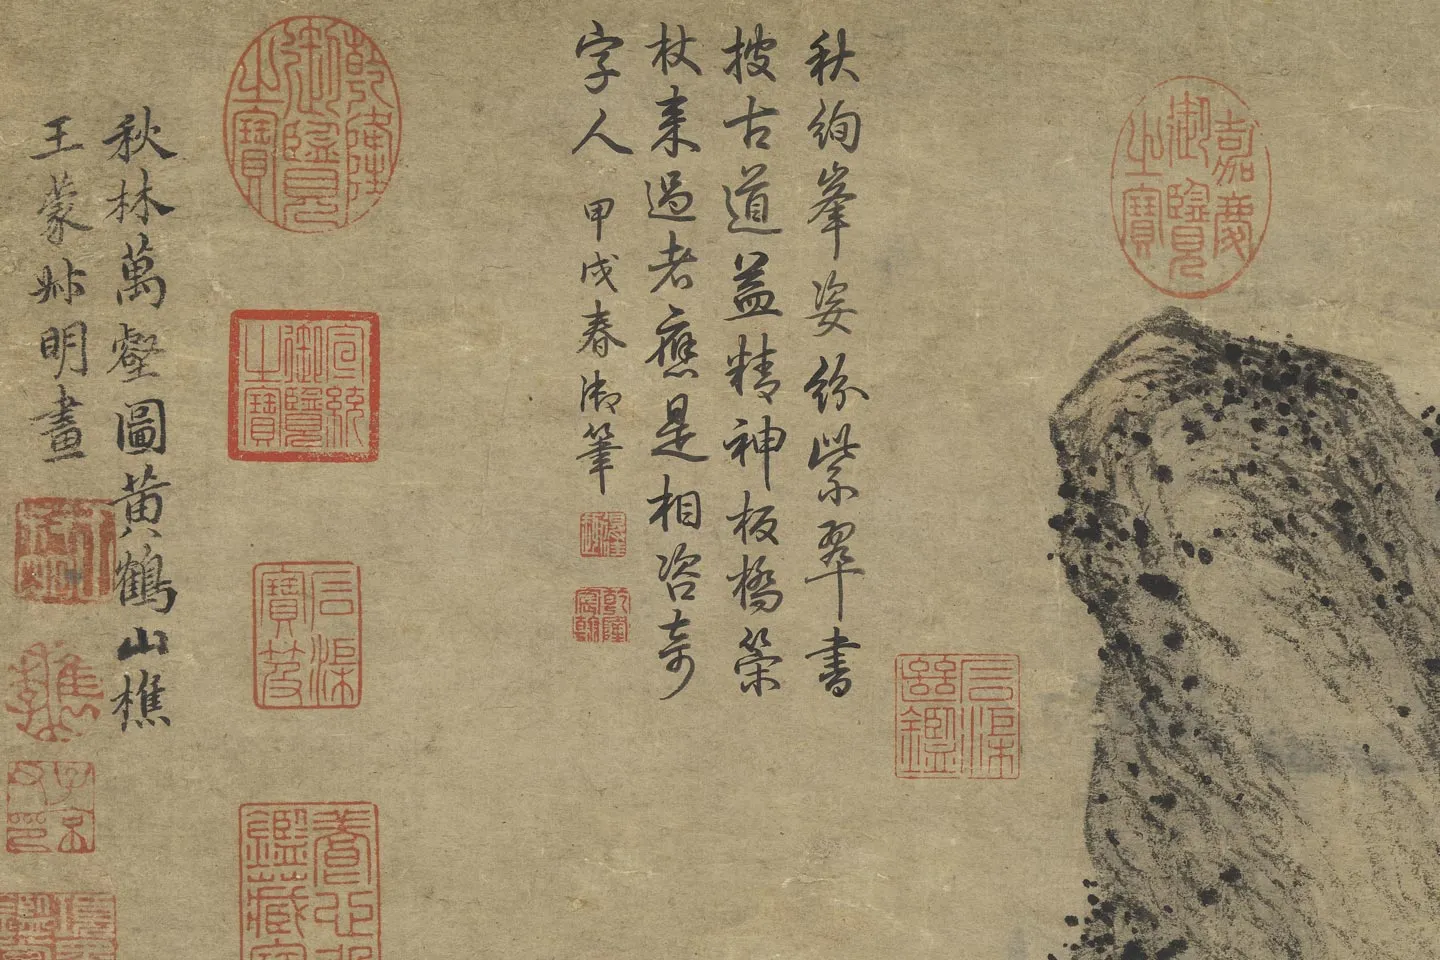 嘉慶御覽之寶
石渠繼鑑
秋絢峯姿紛紫翠書
披古道益精神板橋策
杖来過者應是相咨奇
字人 甲戌春御筆
乾隆宸翰
乾隆御覽之寶
宣統御覽之寶
石渠寶笈
養心殿鑑藏寶
秋林萬壑圖黄鶴山樵
王蒙叔明畫
子京父印